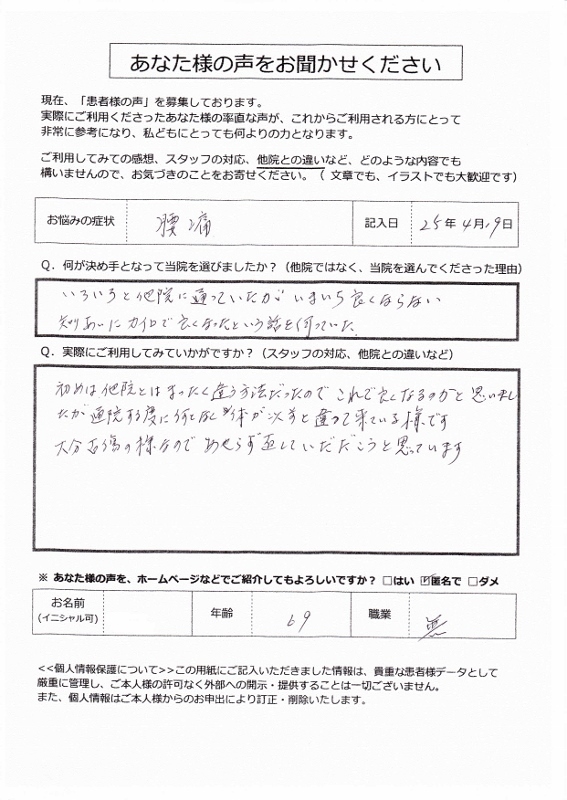 あなた様の声をお聞かせください
現在、「患者様の声」を募集しております。
実際にご利用くださったあなた様の率直な声が、これからご利用される方にとって
非常に参考になり、私どもにとっても何よりの力となります。
ご利用してみての感想、スタッフの対応、他院との違いなど、どのような内容でも
構いませんので、お気づきのことをお寄せください。（ 文章でも、イラストでも大歓迎です）
お悩みの症状 腰痛 記入日 25年4月19日
Q．何が決め手となって当院を選びましたか？（他院ではなく、当院を選んでくださった理由）
いろいろと他院に通っていたが いまいち良くならない
知りあいにカイロで良くなったという話を伺っていた。
Q．実際にご利用してみていかがですか？（スタッフの対応、他院との違いなど）
初めは他院とはまったく違う方法だったので これで良くなるのかと思いまし
たが通院する度に何となく 身体が以前と違って来ている様です
大分古傷の様なので あせらず直していただこうと思っています
※ あなた様の声を、ホームページなどでご紹介してもよろしいですか？ □はい ☑匿名で □ダメ
お名前 年齢 69 職業 無
(イニシャル可)
<<個人情報保護について>>この用紙にご記入いただきました情報は、貴重な患者様データとして
厳重に管理し、ご本人様の許可なく外部への開示・提供することは一切ございません。
また、個人情報はご本人様からのお申出により訂正・削除いたします。